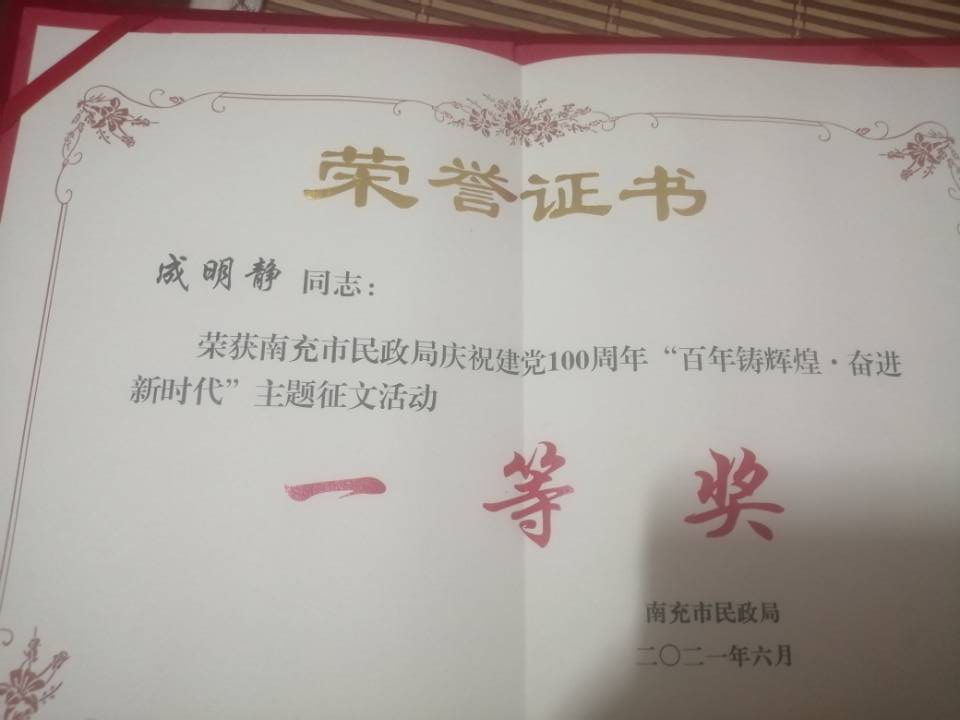 荣誉证书
成明静 同志：
荣获南充市民政局庆祝建党100周年“百年铸辉煌·奋进
新时代”主题征文活动
一等奖
南充市民政局
二〇二一年六月